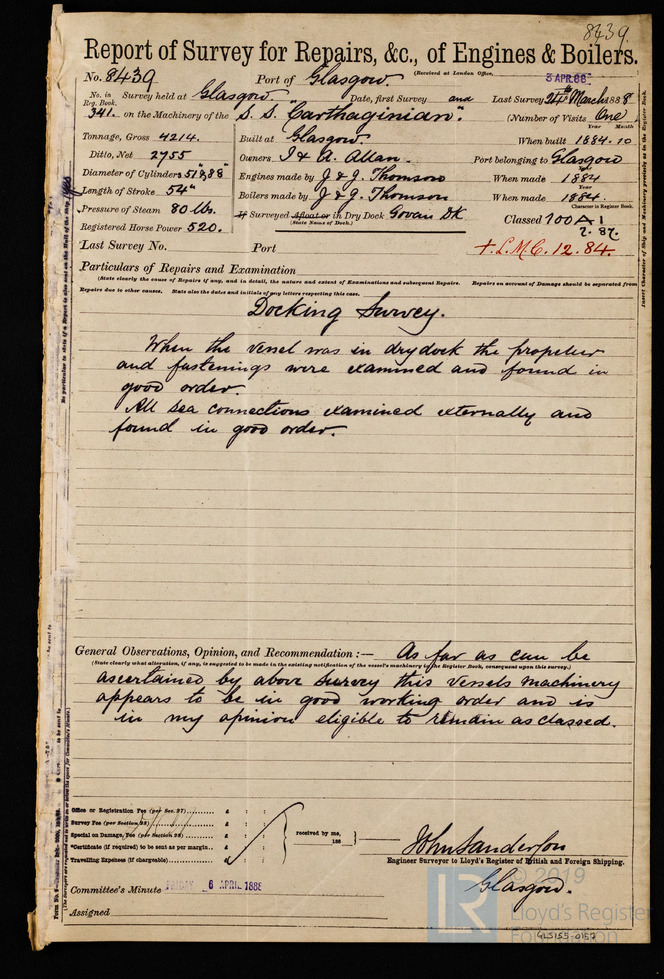 8439.
Report of Survey for Repairs, &c., of Engines & Boilers.
No. 8439 Port of Glasgow. (Received at London Office, 3 APR 88
No. in Reg. Book. Survey held at Glasgow. Date, first Survey and Last Survey 24th March 1888.
341. on the Machinery of the S. S. "Carthaginian". (Number of Visits One)
Tonnage, Gross 4214. Built at Glasgow. When built 1884.10 Year Month
Ditto, Net 2755 Owners J & A. Allan. Port belonging to Glasgow
Diameter of Cylinders 51" & 88" Engines made by J & J. Thomson When made 1884 Year
Length of Stroke 54" Boilers made by J & J. Thomson When made 1884.
Pressure of Steam 80 lbs. If Surveyed afloat or in Dry Dock Govan Dk (State Name of Dock.) Character in Register Book.
Registered Horse Power 520. Classed 100 A 1
2.87.
Last Survey No. Port + L.M.C. 12.84.
Particulars of Repairs and Examination
(State clearly the cause of Repairs if any, and in detail, the nature and extent of Examinations and subsequent Repairs. Repairs on account of Damage should be separated from
Repairs due to other causes. State also the dates and initials of any letters respecting this case.
Docking Survey.
When the vessel was in drydock the propeller
and fastenings were examined and found in
good order.
All sea connections examined externally and
found in good order.
General Observations, Opinion, and Recommendation :— As far as can be
(State clearly what alteration, if any, is suggested to be made in the existing notification of the vessel's machinery in the Register Book, consequent upon this survey.)
ascertained by above survey this vessels machinery
appears to be in good working order and is
in my opinion eligible to remain as classed.
Office or Registration Fee (per Sec. 27) £ : :
Survey Fee (per Section 28) £ : :
Special on Damage, Fee (per Section 28) £ : : received by me,
*Certificate (if required) to be sent as per margin £ : : 188
Travelling Expenses (if chargeable) £ : :
John Sanderson
Engineer Surveyor to Lloyd's Register of British and Foreign Shipping.
Glasgow.
Committee's Minute FRIDAY 6 APRIL 1888
Assigned
© 2019
LR
Lloyd's Register
Foundation
GLS155-0157